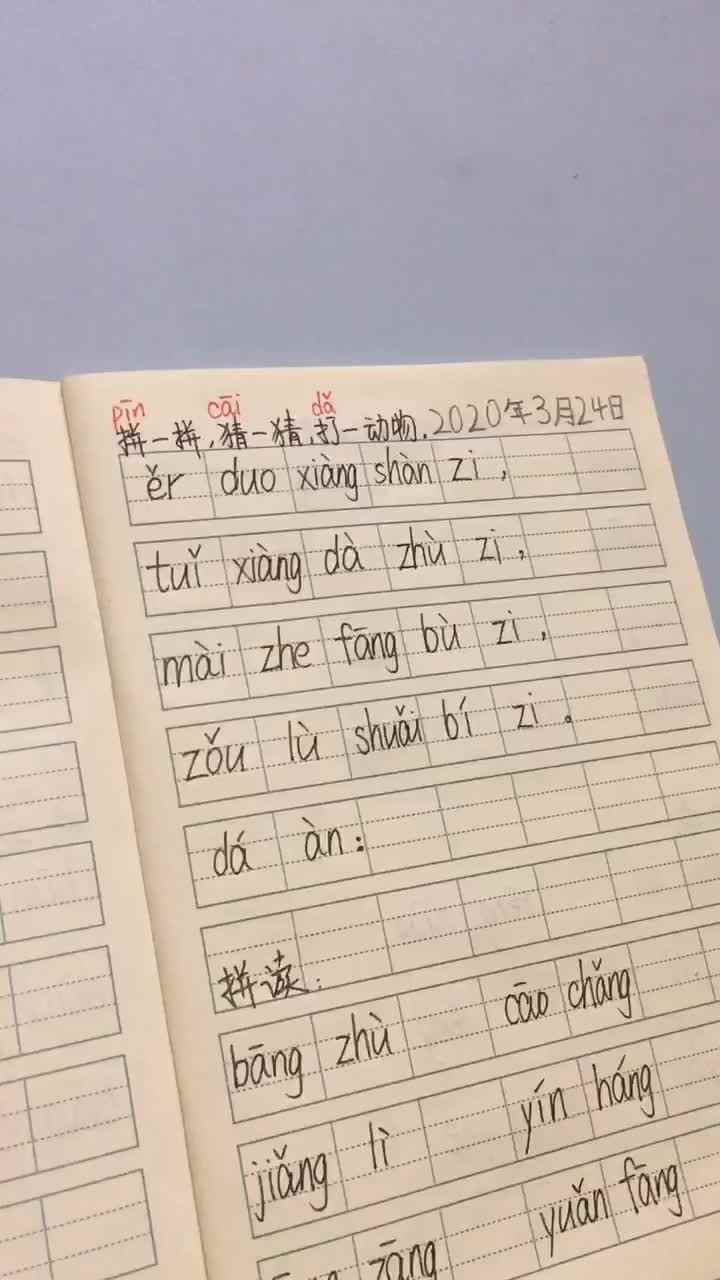 pīn cāi dǎ
拼一拼,猜一猜,打一动物. 2020年3月24日
ěr duo xiàng shàn zi ,
tuǐ xiàng dà zhù zi ,
mài zhe fāng bù zi ,
zǒu lù shuǎi bí zi 。
dá àn :
拼读:
bāng zhù cāo chǎng
jiǎng lì yín háng
zāng yuǎn fāng